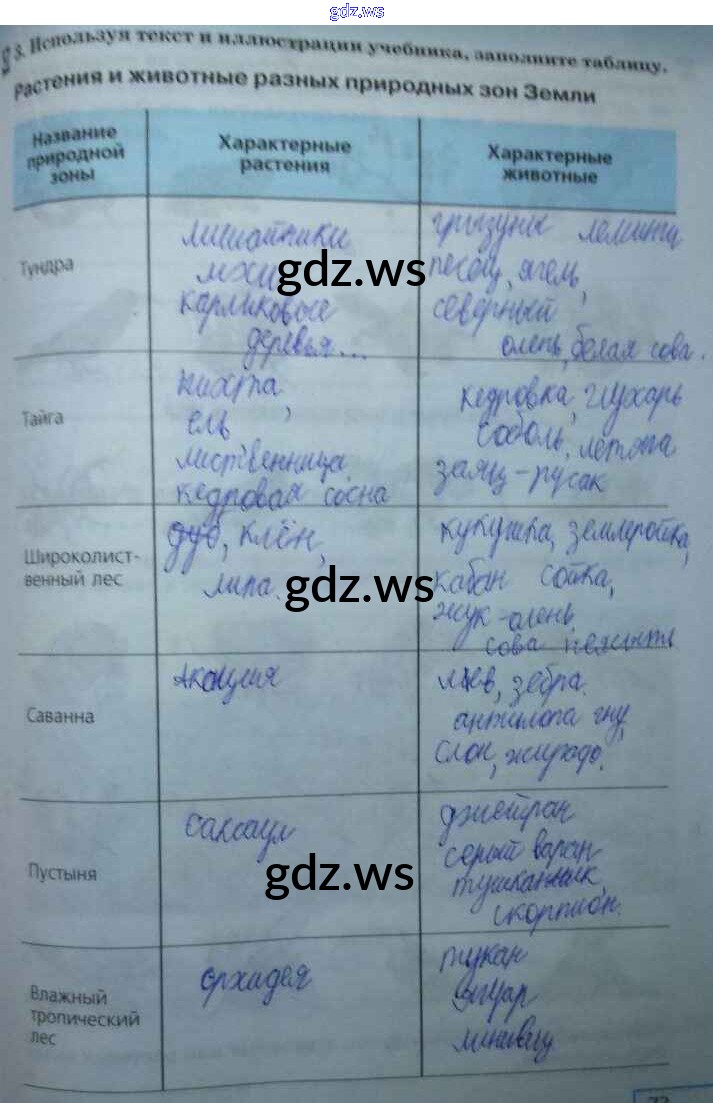 gdz.ws
3. Используя текст и иллюстрации учебника, заполните таблицу.
Растения и животные разных природных зон Земли
Название
природной
зоны
Характерные
растения
Характерные
животные
Тундра
лишайники
мхи
карликовые
деревья...
грызуны лемминги
песец, ягель,
северный
олень, белая сова.
gdz.ws
Тайга
пихта,
ель
лиственница
кедровая сосна
кедровка, глухарь
соболь, летяга
заяц-русак
Широколист-
венный лес
дуб, клён,
липа.
кукушка, землеройка,
кабан сойка,
жук-олень,
сова неясыть
gdz.ws
Саванна
Акация
лев, зебра.
антилопа гну,
слон, жираф.
Пустыня
саксаул
джейран
серый варан
тушканчик,
скорпион.
gdz.ws
Влажный
тропический
лес
орхидея
тукан
ягуар